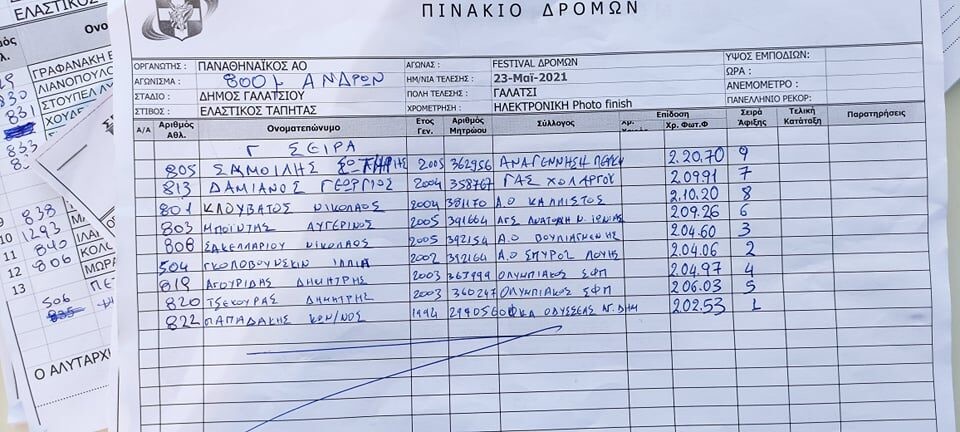 ΕΛΑΣΤΙΚΟΣ
ΠΙΝΑΚΙΟ ΔΡΟΜΩΝ
ΟΡΓΑΝΩΤΗΣ : ΠΑΝΑΘΗΝΑΪΚΟΣ ΑΟ ΑΓΩΝΑΣ : FESTIVAL ΔΡΟΜΩΝ ΥΨΟΣ ΕΜΠΟΔΙΩΝ:
ΑΓΩΝΙΣΜΑ : 800μ ΑΝΔΡΩΝ ΗΜ/ΝΙΑ ΤΕΛΕΣΗΣ : 23-Μαϊ-2021 ΩΡΑ :
ΣΤΑΔΙΟ : ΔΗΜΟΣ ΓΑΛΑΤΣΙΟΥ ΠΟΛΗ ΤΕΛΕΣΗΣ : ΓΑΛΑΤΣΙ ΑΝΕΜΟΜΕΤΡΟ :
ΣΤΙΒΟΣ : ΕΛΑΣΤΙΚΟΣ ΤΑΠΗΤΑΣ ΧΡΟΜΕΤΡΗΣΗ : ΗΛΕΚΤΡΟΝΙΚΗ Photo finish ΠΑΝΕΛΛΗΝΙΟ ΡΕΚΟΡ:
Α/Α Αριθμός Αθλ. Ονοματεπώνυμο Ετος Γεν. Αριθμός Μητρώου Σύλλογος Επίδοση Χρ. Φωτ.Φ Σειρά Άφιξης Τελική Κατάταξη Παρατηρήσεις
Γ ΣΕΙΡΑ
805 ΣΑΜΟΙΛΗΣ ΣΩΤΗΡΗΣ 2005 362956 ΑΝΑΓΕΝΝΗΣΗ 2.20.70 9
813 ΔΑΜΙΑΝΟΣ ΓΕΩΡΓΙΟΣ 2004 358767 ΓΑΣ ΧΟΛΑΡΓΟΥ 2.09.91 7
801 ΚΛΟΥΒΑΤΟΣ ΝΙΚΟΛΑΟΣ 2004 381170 Α.Ο ΚΑΛΛΙΣΤΟΣ 2.10.20 8
803 ΜΠΟΙΝΤΑΣ ΑΥΓΕΡΙΝΟΣ 2005 391664 ΑΓΣ ΑΝΑΤΟΛΗ Ν. ΙΩΝΙΑΣ 2.09.26 6
808 ΣΑΚΕΛΛΑΡΙΟΥ ΝΙΚΟΛΑΟΣ 2005 392154 Α.Ο ΒΟΥΛΙΑΓΜΕΝΗΣ 2.04.60 3
504 ΓΚΟΛΟΒΟΥΝΣΚΙΝ ΙΛΛΙΑ 2002 392164 Α.Ο ΣΠΥΡΟΣ ΛΟΥΗΣ 2.04.06 2
819 ΑΓΟΥΡΙΔΗΣ ΔΗΜΗΤΡΗΣ 2003 367999 ΟΛΥΜΠΙΑΚΟΣ ΣΦΠ 2.04.97 4
820 ΤΣΕΚΟΥΡΑΣ ΔΗΜΗΤΡΗΣ 2003 360247 ΟΛΥΜΠΙΑΚΟΣ ΣΦΠ 2.06.03 5
822 ΠΑΠΑΔΑΚΗΣ ΚΩΝ/ΝΟΣ 1994 299056 ΟΦΚΑ ΟΔΥΣΣΕΑΣ 2.02.53 1
Ονο
ΓΡΑΦΑΝΑΚΗ
830 ΛΙΑΝΟΠΟΥΛΟ
831 ΣΤΟΥΠΕΛ
ΧΟΥΔΕ
833
9 838
10 1293
11 840 ΙΛΑ
12 806 ΚΟΛΟ
13 ΜΩΡΑ
506
835
Ο ΑΛΥΤΑΡΧ